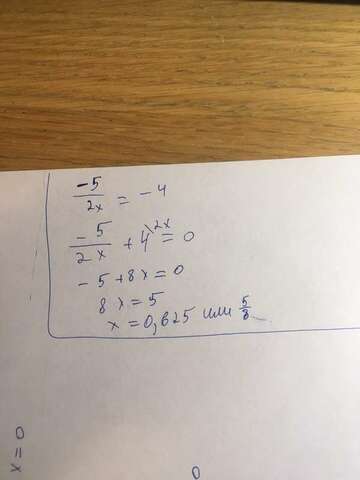 -5/2x = -4
-5/2x + 4^2x = 0
-5+8x=0
8x=5
x=0,625 или 5/8
x=0
0